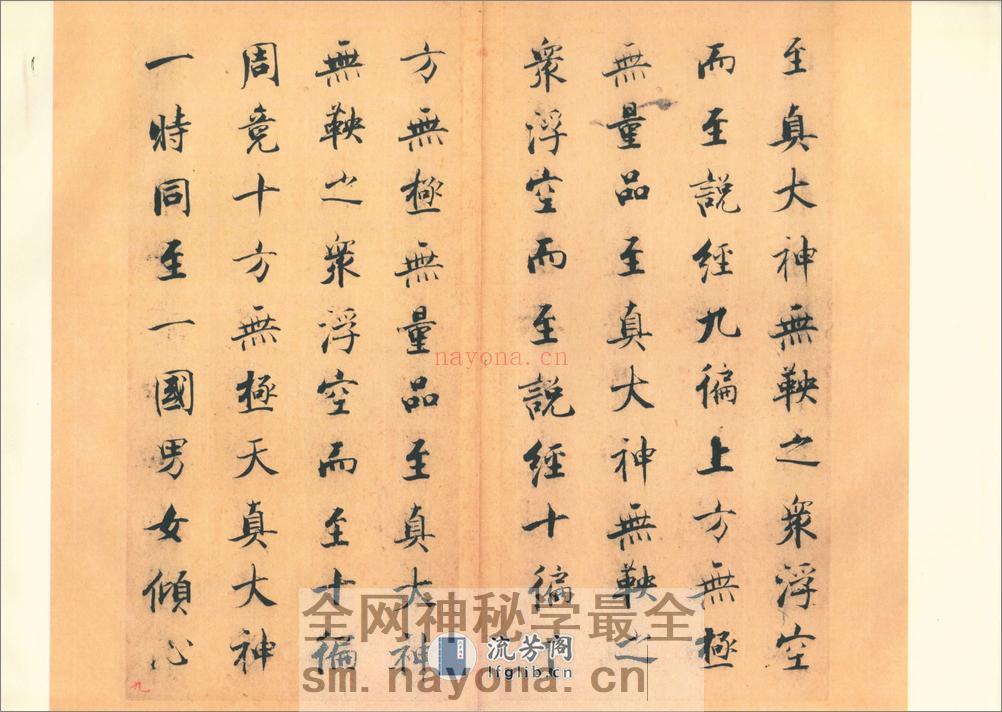 至真大神無鞅之衆浮空
而至說經九徧上方無極
無量品至真大神無鞅之
衆浮空而至說經十徧
方無極無量品至真大神
無鞅之衆浮空而至十徧
周竟十方無極天真大神
一時同至一國男女傾心
九
nayona.cn
全网神秘学最全
流芳阁
lfglib.cn
sm.nayona.cn